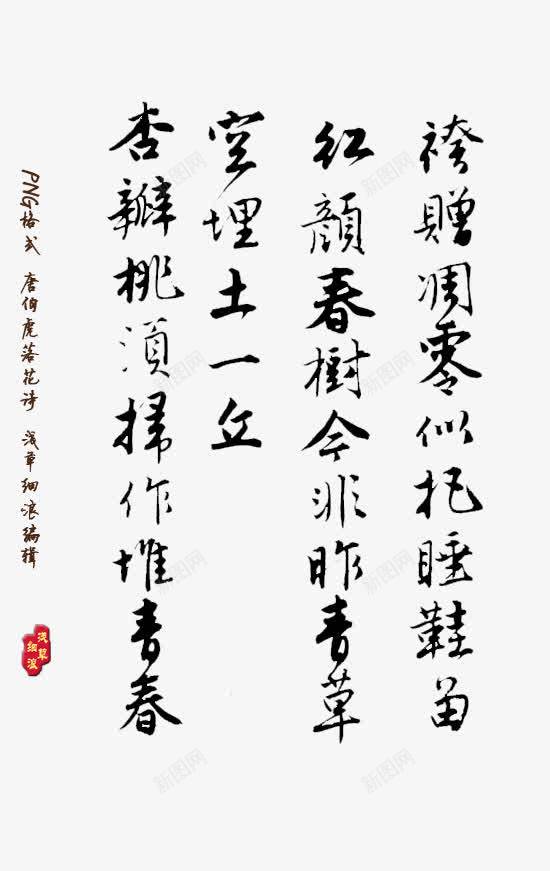 袴贈凋零似把睡鞋留
紅顏春樹今非昨青草
空埋土一丘
杏瓣桃須掃作堆青春
PNG格式 唐伯虎落花诗 浅草细浪编辑
浅草
细浪
新图网